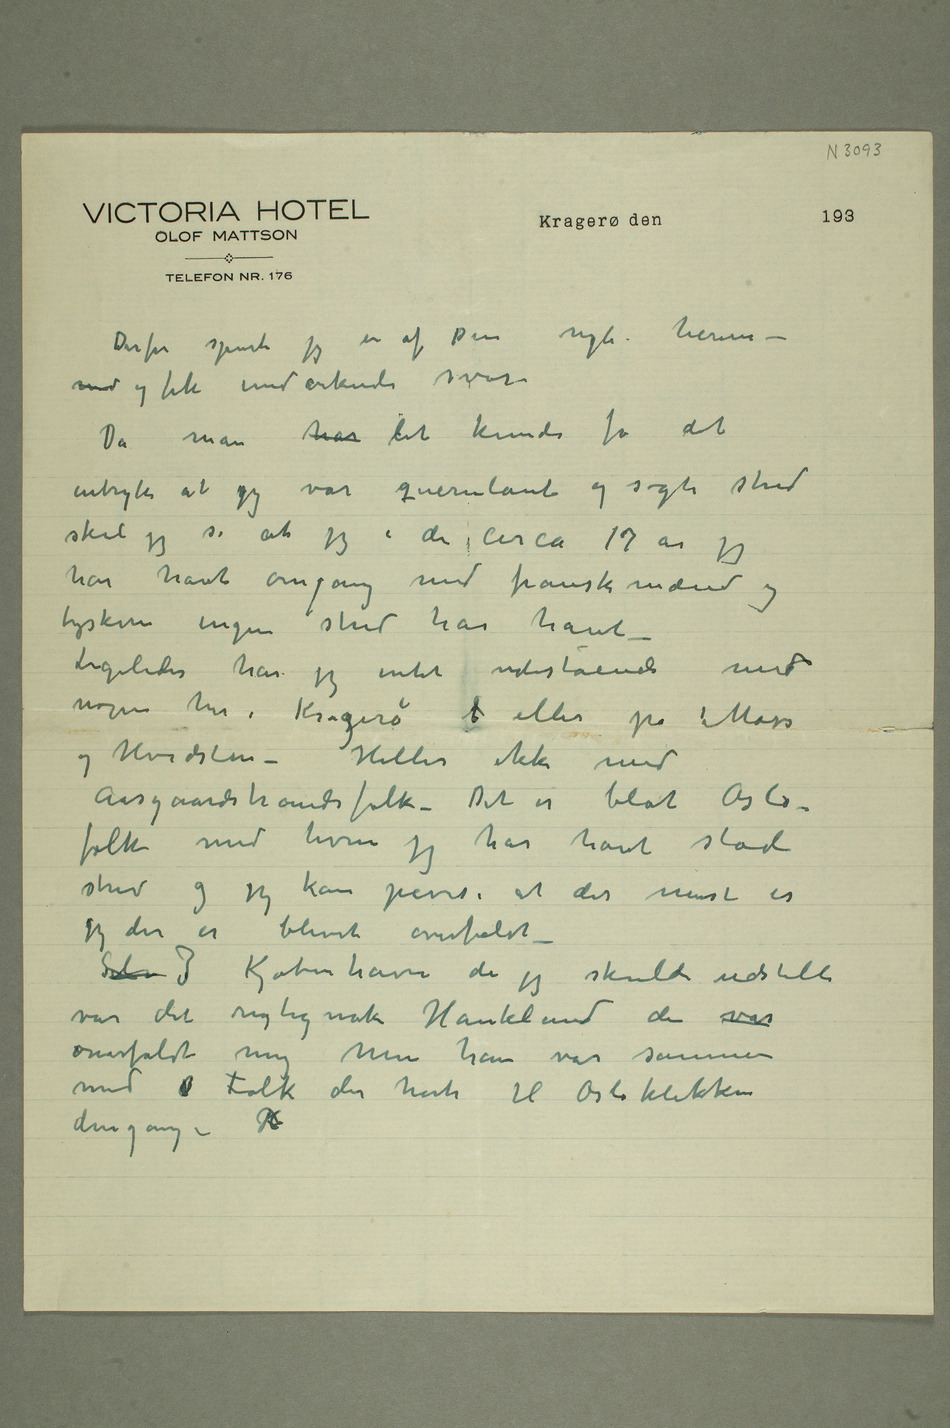 N 3093
VICTORIA HOTEL
OLOF MATTSON
TELEFON NR. 176
Kragerø den 193
Derfor spurte jeg en af Dem
og fik
Da man har let kunde få det
indtryk at jeg var querulant og søgte strid
skal jeg si at jeg i de circa 17 år jeg
har havt omgang med franskmænd og
tyskere ingen strid har havt –
Ligeledes har jeg intet udestående med
nogen her i Kragerø eller på Moss
og Hvidsten – Heller ikke med
Aasgaardstrandsfolk – Det er blot Oslo-
folk med hvem jeg har havt stadi
strid og jeg kan påvise at det mest er
jeg der er blivet overfaldt –
Selv I Kjøbenhavn da jeg skulde udstille
var det rigtignok Haukland der var
overfaldt mig Men han var sammen
med Folk der hørte til Osloklikken
dengang –